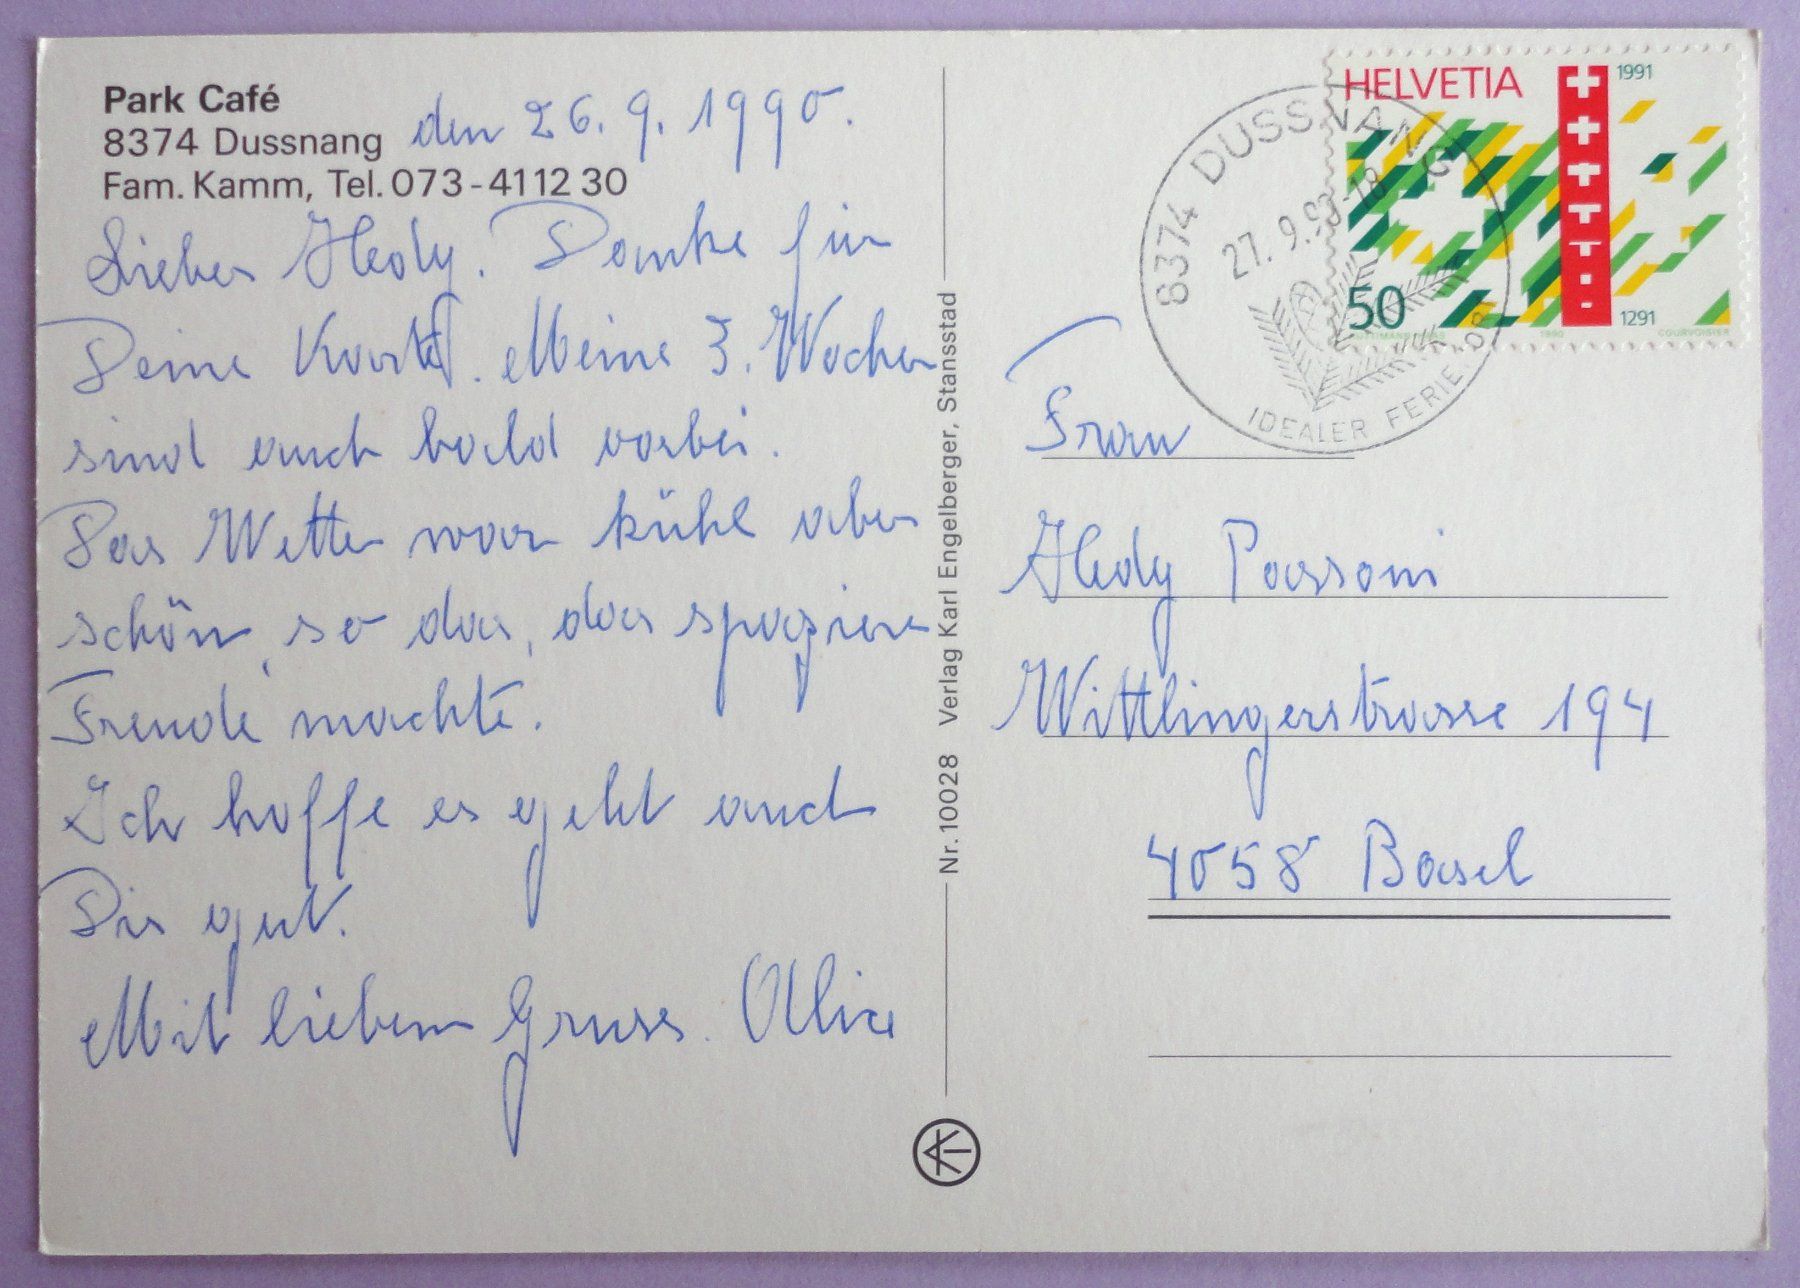 Park Café
8374 Dussnang
Fam. Kamm, Tel. 073-41 12 30
den 26. 9. 1990.
Liebes Hedy. Danke für
Deine Karte. Meine 3. Wochen
sind auch bald vorbei.
Das Wetter war kühl aber
schön, so das, das spazieren
Freude machte.
Ich hoffe es geht auch
Dir gut.
Mit liebem Gruss. Alice
Nr. 10028 Verlag Karl Engelberger, Stansstad
HELVETIA
1991
50
1291
1990
COURVOISIER
8374 DUSSNANG
27. 9. 90-18
IDEALER FERIENORT
Frau
Hedy Passoni
Wittlingerstrasse 194
4058 Basel